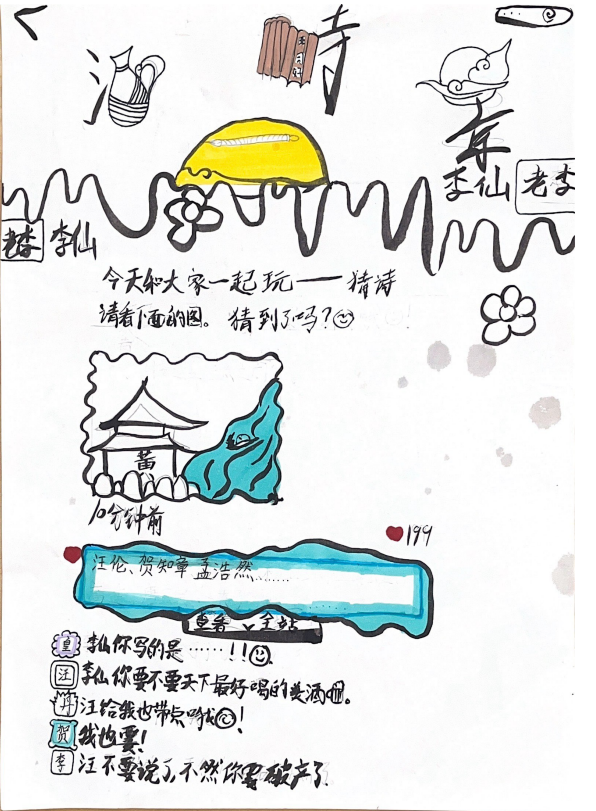 诗
李仙 老李
老李 李仙
今天和大家一起玩——猜诗
请看下面的图。猜到了吗?
黄
10分钟前
199
汪伦、贺知章 孟浩然………
查看 全站
皇 李仙你写的是……!!
汪 李仙你要不要天下最好喝的美酒。
丹 汪给我也带点哟!
贺 我也要!
李 汪不要说了,不然你要破产了.